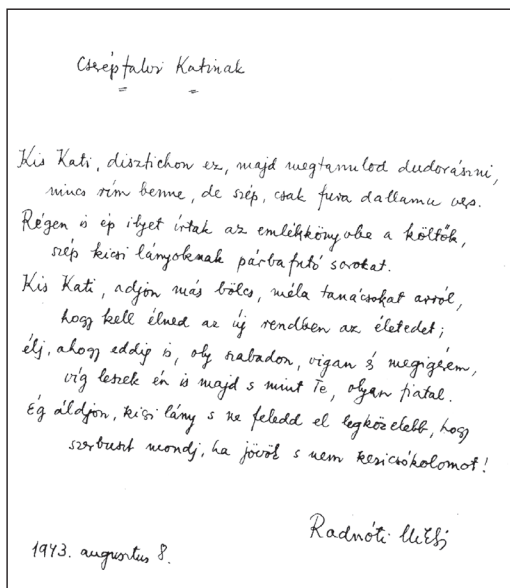 Cserépfalvi Katinak
Kis Kati, disztichon ez, majd megtanulod dudorászni,
nincs rím benne, de szép, csak fura dallamu vers.
Régen is ép ilyet írtak az emlékkönyvbe a költők,
szép kicsi lányoknak párbafutó sorokat.
Kis Kati, adjon más bölcs, méla tanácsokat arról,
hogy kell élned az új rendben az életedet;
élj, ahogy eddig is, oly szabadon, vigan s megigérem,
víg leszek én is majd s mint Te, olyan fiatal.
Ég áldjon, kicsi lány s ne feledd el legközelebb, hogy
szerbuszt mondj, ha jövök s nem kezicsókolomot!
Radnóti Miklós
1943. augusztus 8.